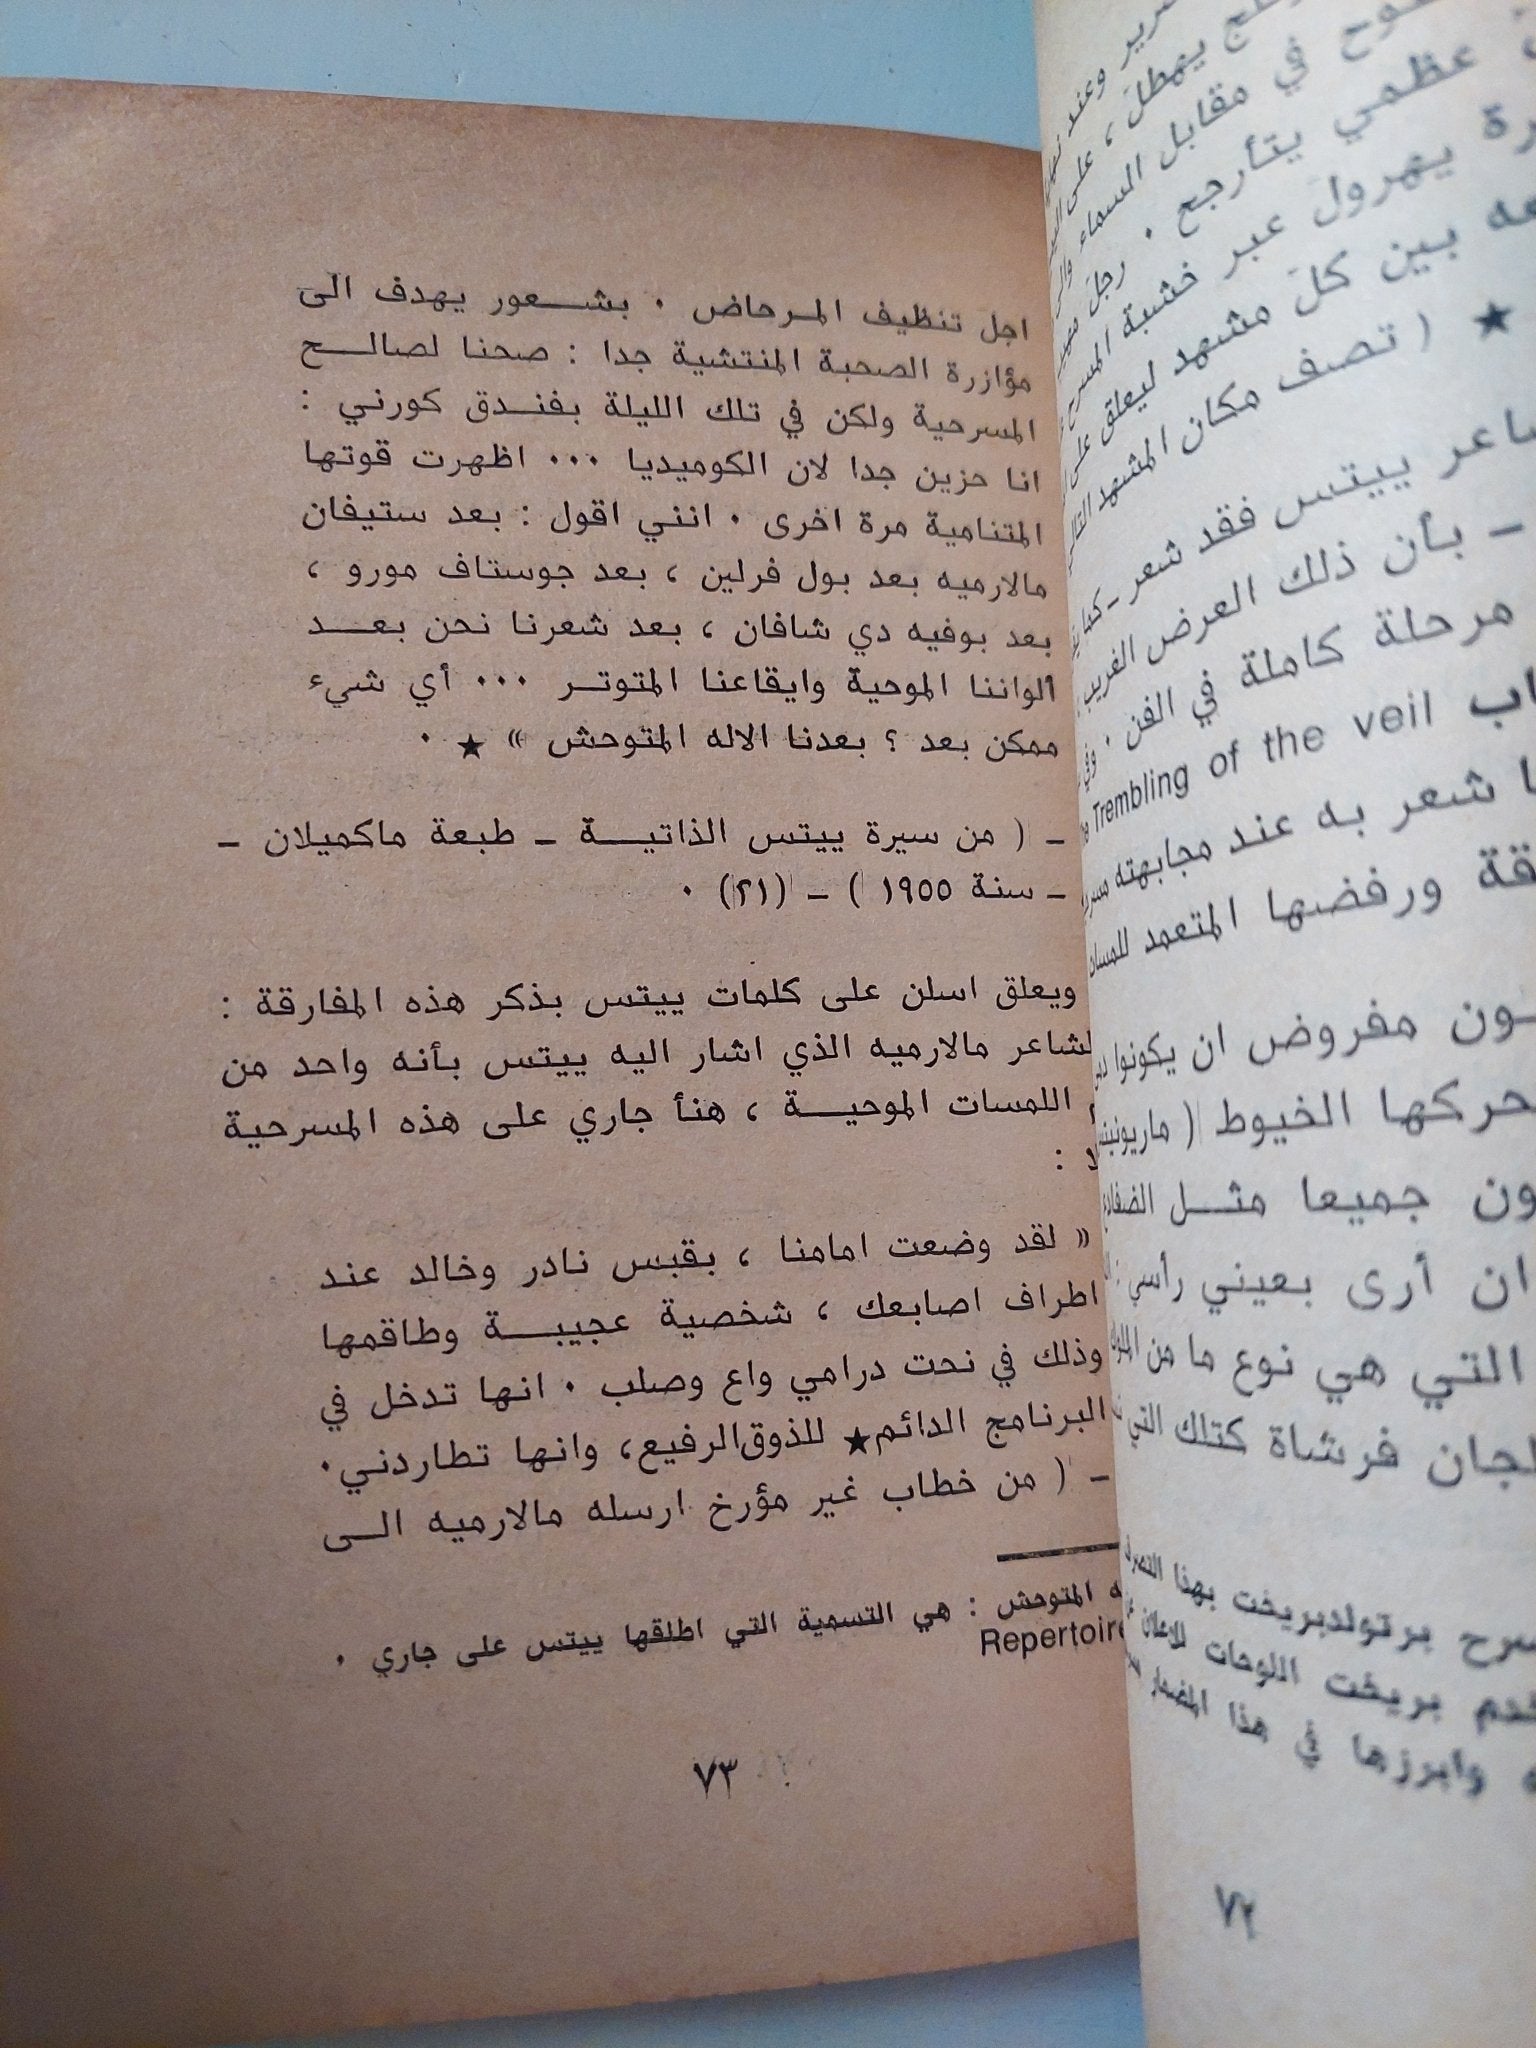 اجل تنظيف المرحاض . بشعور يهدف الى
مؤازرة الصحبة المنتشية جدا : صحنا لصالح
المسرحية ولكن في تلك الليلة بفندق كورني :
انا حزين جدا لان الكوميديا ... اظهرت قوتها
المتنامية مرة اخرى . انني اقول : بعد ستيفان
مالارميه بعد بول فرلين ، بعد جوستاف مورو ،
بعد بوفيه دي شافان ، بعد شعرنا نحن بعد
الواننا الموحية وايقاعنا المتوتر ... أي شيء
ممكن بعد ؟ بعدنا الاله المتوحش » ★ .
ـ ( من سيرة ييتس الذاتية ـ طبعة ماكميلان ـ
ـ سنة ١٩٥٥ ) ـ (٢١) .
ويعلق اسلن على كلمات ييتس بذكر هذه المفارقة :
لشاعر مالارميه الذي اشار اليه ييتس بأنه واحد من
اللمسات الموحية ، هنأ جاري على هذه المسرحية
:
« لقد وضعت امامنا ، بقبس نادر وخالد عند
اطراف اصابعك ، شخصية عجيبة وطاقمها
وذلك في نحت درامي واع وصلب . انها تدخل في
البرنامج الدائم★ للذوق الرفيع، وانها تطاردني.
ـ ( من خطاب غير مؤرخ ارسله مالارميه الى
المتوحش : هي التسمية التي اطلقها ييتس على جاري .
Repertoire
٧٣
وعند
يمطل ، على
في مقابل السماء
عظمي يتأرجح . رجل
يهرول عبر خشبة المسرح
بين كل مشهد ليعلق على
★ ( تصف مكان المشهد التالي
ييتس فقد شعر ـ كما
ـ بأن ذلك العرض الغريب
مرحلة كاملة في الفن .
Trembling of the veil
شعر به عند مجابهته
ورفضها المتعمد
مفروض ان يكونوا
الخيوط (
جميعا مثل
ان أرى بعيني رأسي
التي هي نوع ما من
فرشاة كتلك التي
برتولدبريخت بهذا
بريخت اللوحات للاعلان
وابرزها في هذا المضمار
٧٢